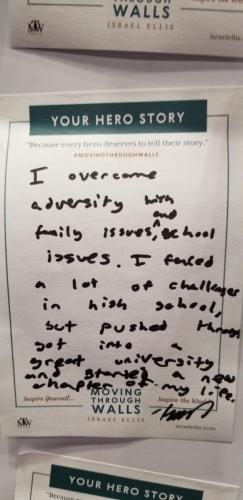 THROUGH
WALLS
ISRAEL ELLIS
Inspire the
MW
israelellis.com
YOUR HERO STORY
"Because every hero deserves to tell their story."
#MOVINGTHROUGHWALLS
I overcame
adversity with
family issues, and school
issues. I faced
a lot of challenges
in high school,
but pushed through
got into a
great university
and started a new
chapter of my life.
Inspire Yourself...
MOVING
THROUGH
WALLS
Inspire the World
ISRAEL ELLIS
MW
israelellis.com
YOUR HERO STORY
"Because